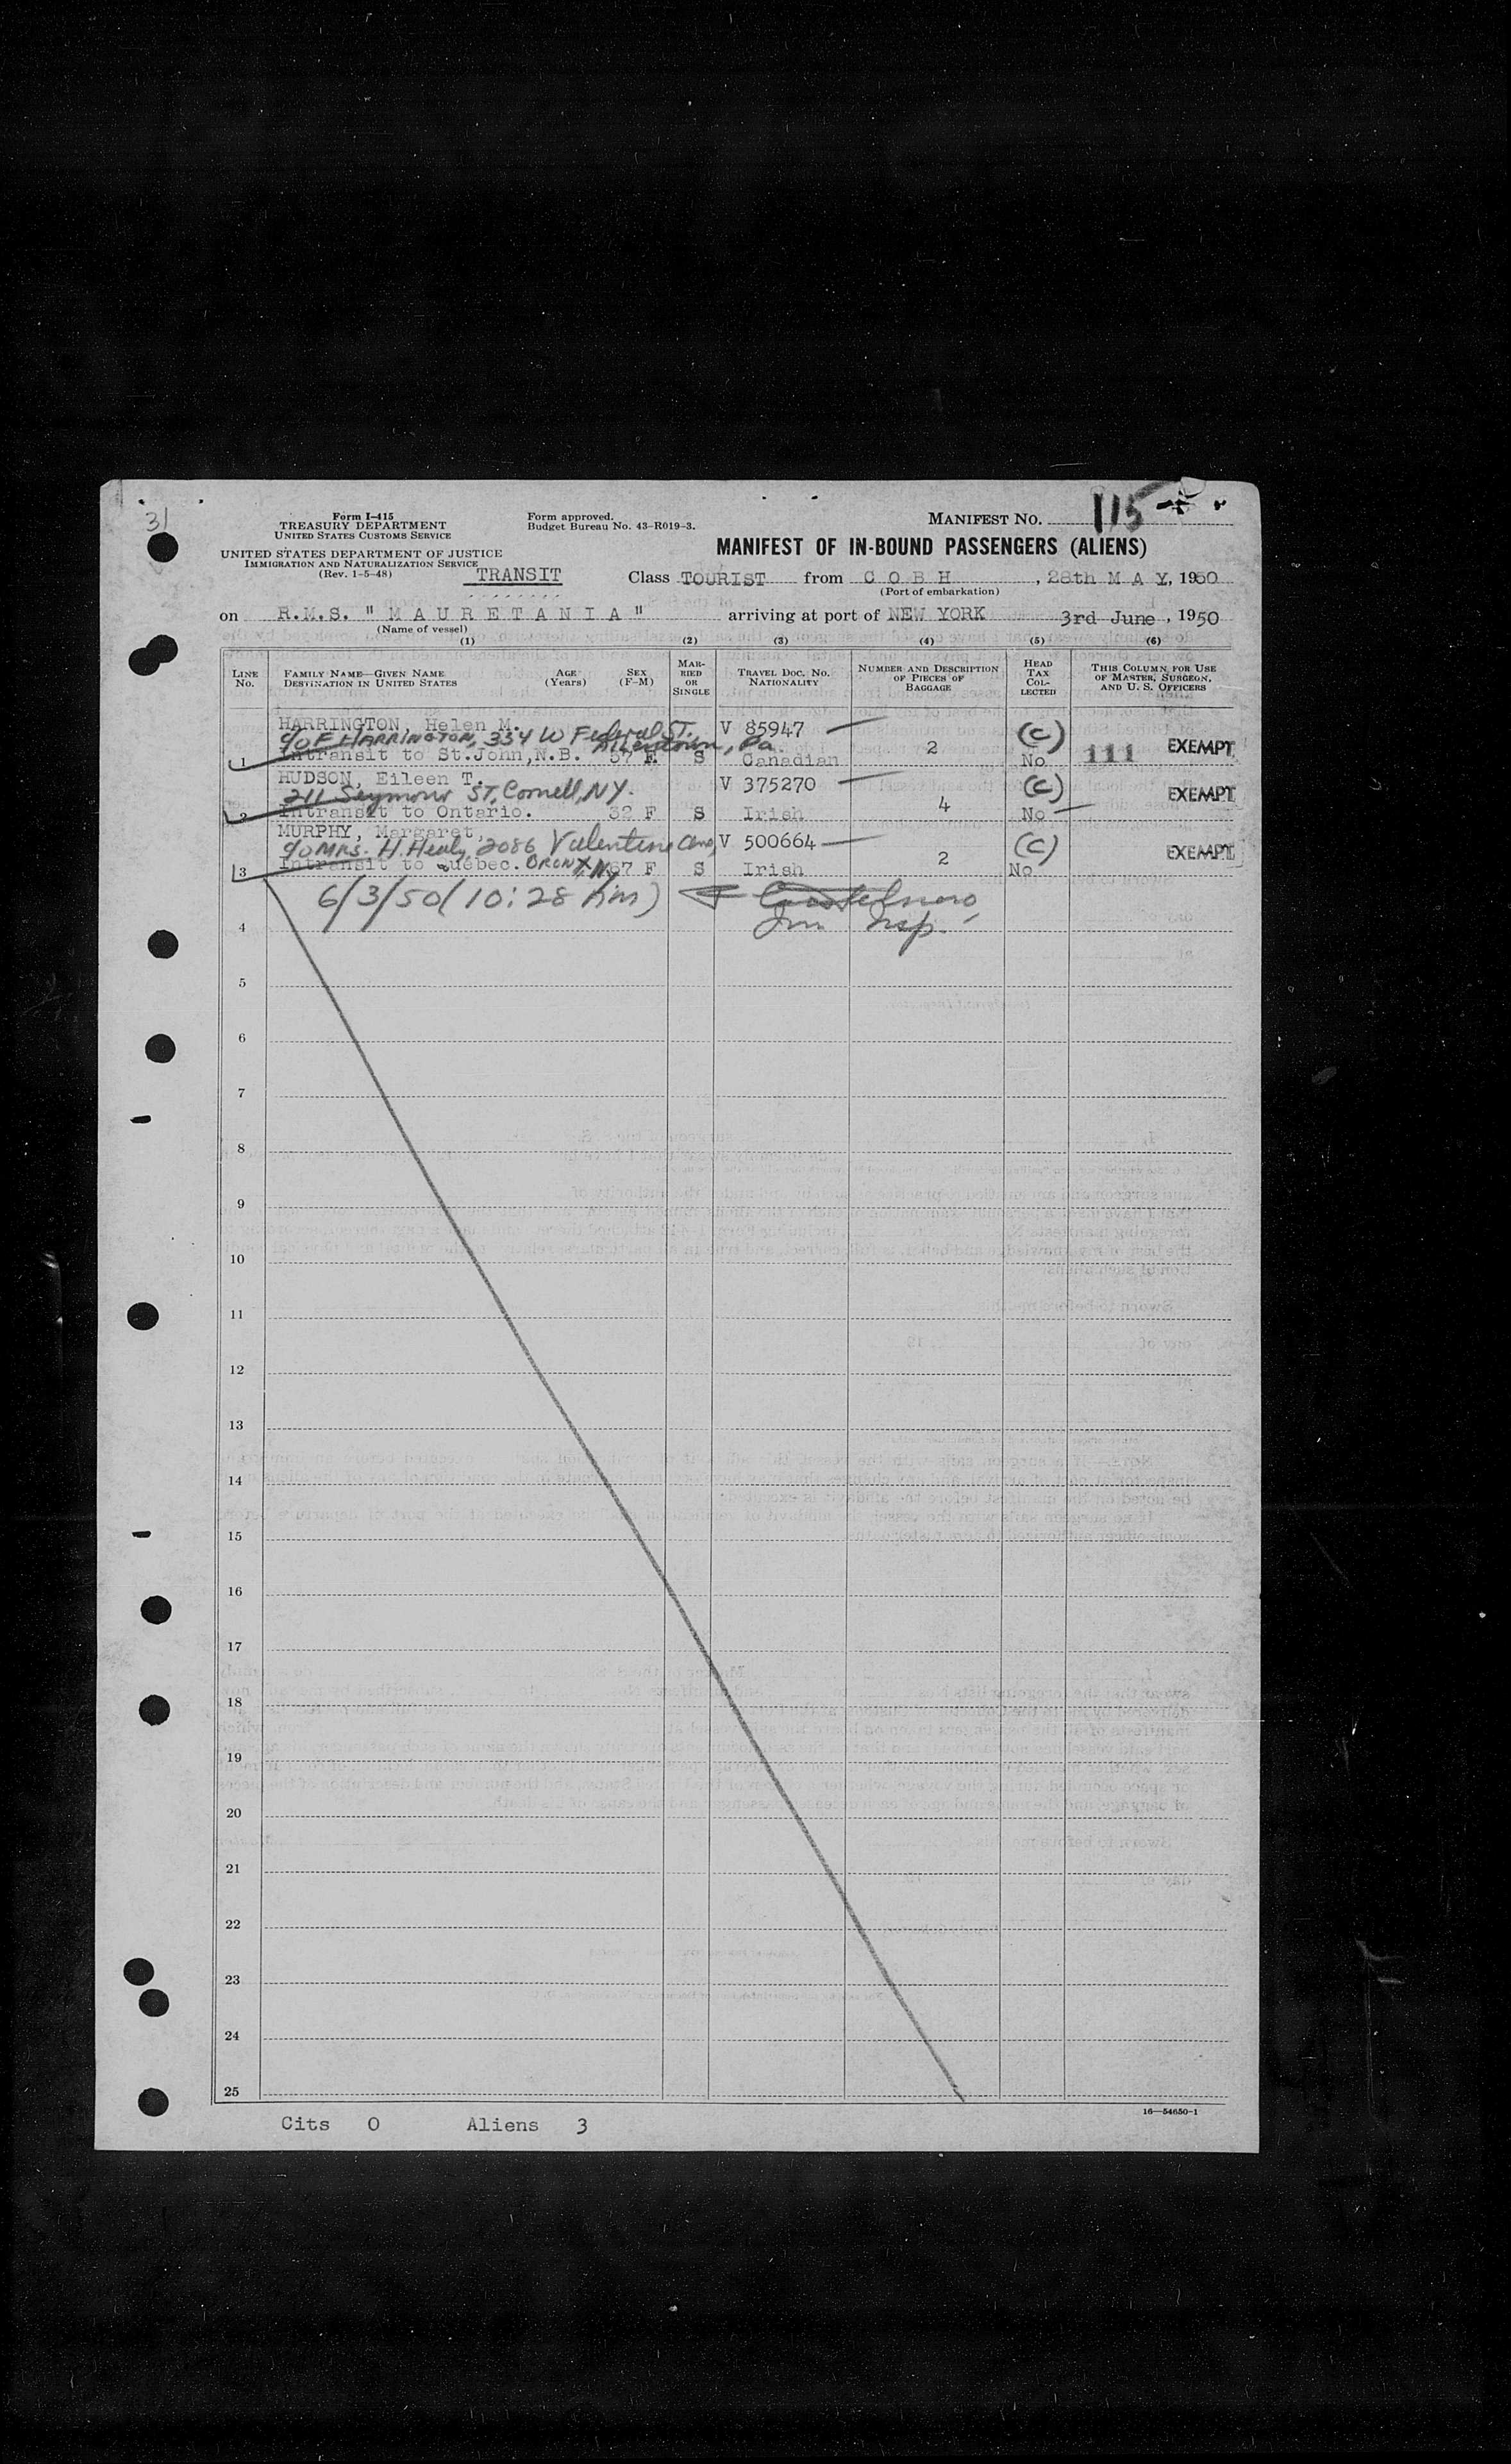 31
Form I-415
TREASURY DEPARTMENT
UNITED STATES CUSTOMS SERVICE
UNITED STATES DEPARTMENT OF JUSTICE
IMMIGRATION AND NATURALIZATION SERVICE
(Rev. 1-5-48)
TRANSIT
Form approved.
Budget Bureau No. 43-R019-3.
MANIFEST NO. 115
MANIFEST OF IN-BOUND PASSENGERS (ALIENS)
Class TOURIST from C O B H, 28th M A Y, 1950
(Port of embarkation)
on R.M.S. " M A U R E T A N I A " arriving at port of NEW YORK 3rd June, 1950
(Name of vessel)
(1) (2) (3) (4) (5) (6)
LINE NO. FAMILY NAME—GIVEN NAME DESTINATION IN UNITED STATES AGE (Years) SEX (F-M) MARRIED OR SINGLE TRAVEL DOC. NO. NATIONALITY NUMBER AND DESCRIPTION OF PIECES OF BAGGAGE HEAD TAX COLLECTED THIS COLUMN FOR USE OF MASTER, SURGEON, AND U. S. OFFICERS
HARRINGTON, Helen M. V 85947 (C)
c/o F HARRINGTON, 334 W Federal ST., Allentown, Pa.
1 Intransit to St.John,N.B. 57 F. S Canadian 2 No 111 EXEMPT
HUDSON, Eileen T. V 375270 (C)
211 Seymour ST, Cornell, NY.
2 Intransit to Ontario. 32 F S Irish 4 No EXEMPT
MURPHY, Margaret, V 500664 (C)
c/o MRS. H. Healy 2086 Valentine Ave,
3 Intransit to Quebec. BRONX, N 67 F S Irish 2 No EXEMPT
6/3/50 (10:28
Imm Insp.
4
5
6
7
8
9
10
11
12
13
14
15
16
17
18
19
20
21
22
23
24
25
16—54650-1
Cits 0 Aliens 3